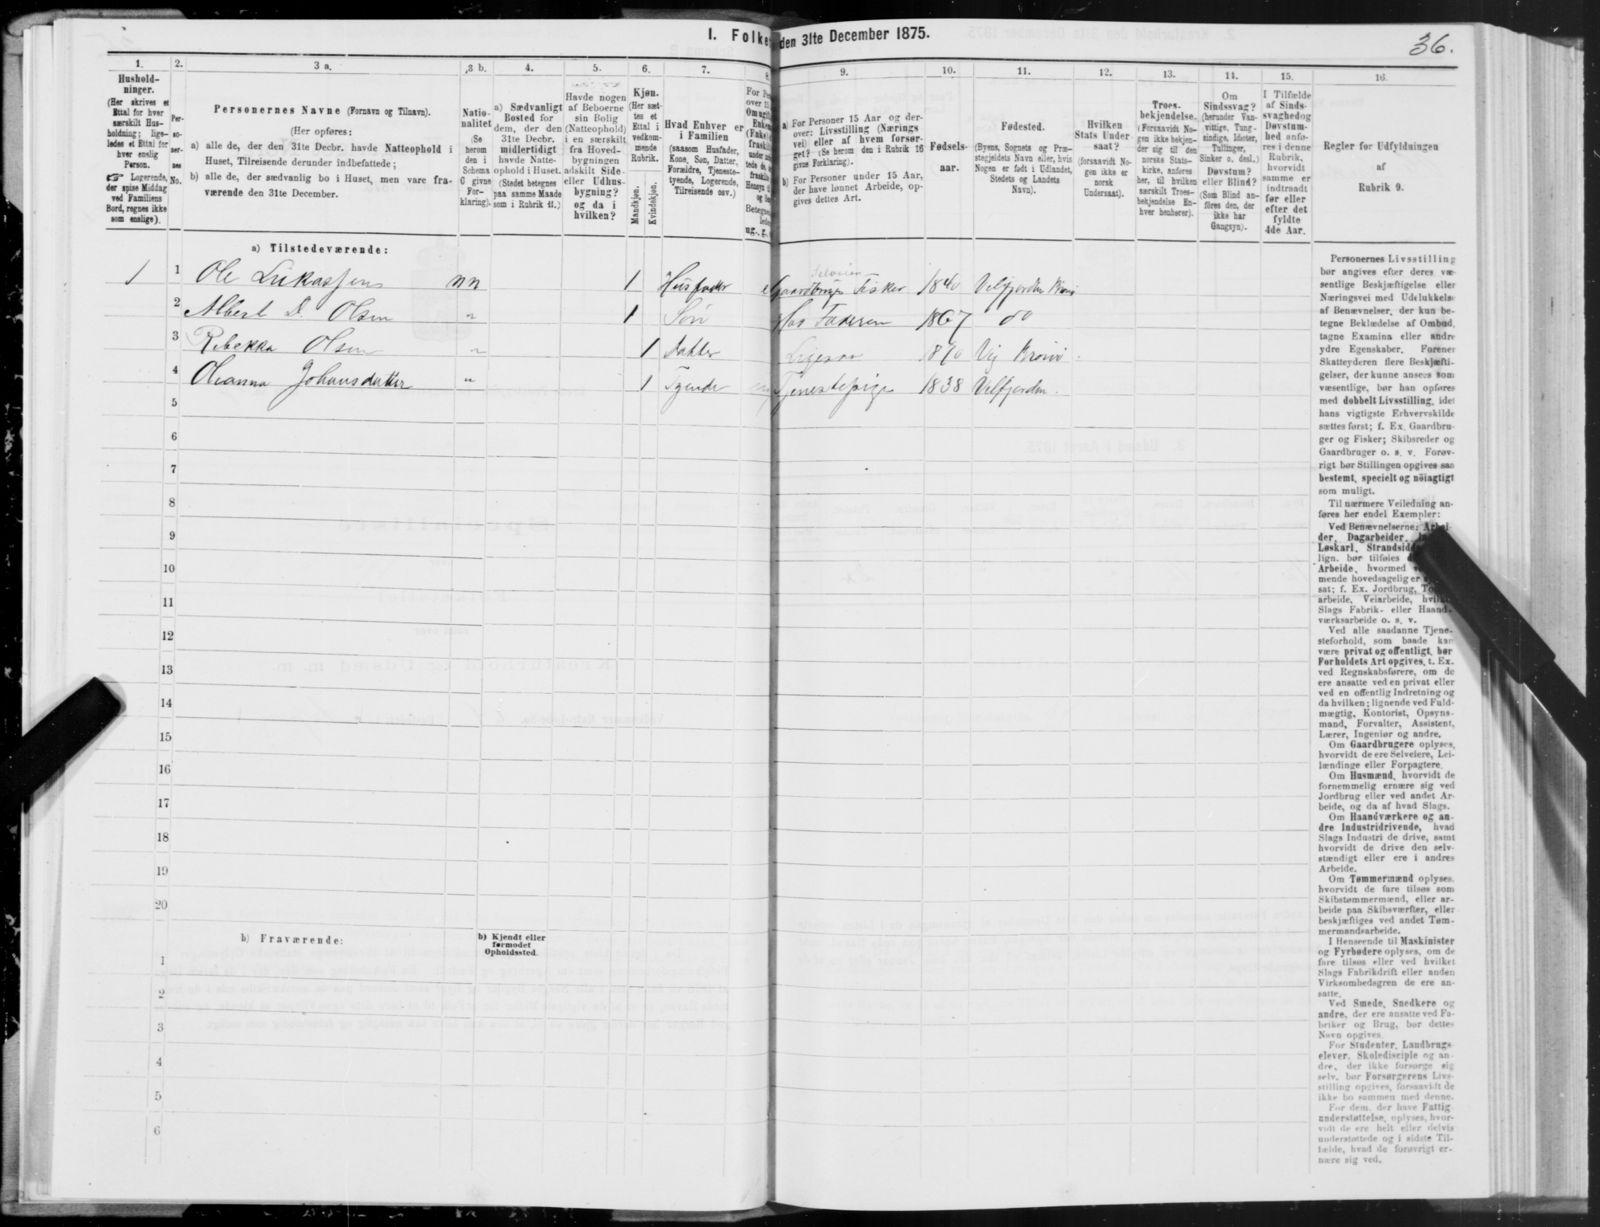 I. Folke den 31te December 1875.
36.
1. 2. 3 a. 3 b. 4. 5. 6. 7. 8. 9. 10. 11. 12. 13. 14. 15. 16.
Hushold-
ninger.
(Her skrives et
Ettal for hver
særskilt Hus-
holdning; lige-
ledes et Ettal for
hver enslig
Person.
☞ Logerende,
der spise Middag
ved Familiens
Bord, regnes ikke
som enslige).
Per-
so-
ner-
nes
No.
Personernes Navne (Fornavn og Tilnavn).
(Her opføres:
a) alle de, der den 31te Decbr. havde Natteophold i
Huset, Tilreisende derunder indbefattede;
b) alle de, der sædvanlig bo i Huset, men vare fra-
værende den 31te December.
Natio-
nalitet
(Se
herom
den i
Schema
G givne
For-
klaring).
a) Sædvanligt
Bosted for
dem, der den
31te Decbr.
midlertidigt
havde Natte-
ophold i Huset.
(Stedet betegnes
paa samme Maade
som i Rubrik 11.)
Havde nogen
af Beboerne
sin Bolig
(Natteophold)
i en særskilt
fra Hoved-
bygningen
adskilt Side-
eller Udhus-
bygning?
og da i
hvilken?
Kjøn.
(Her sæt-
tes et
Ettal i
vedkom-
mende
Rubrik.
Mandkjøn.
Kvindekjøn.
Hvad Enhver er
i Familien
(saasom Husfader,
Kone, Søn, Datter,
Forældre, Tjeneste-
tyende, Logerende,
Tilreisende osv.)
For Pe
over 15
Om ugift
Enke
(Enkel
fraskil
ug., g.,
a) For Personer 15 Aar og der-
over: Livsstilling (Nærings
vei) eller af hvem forsør-
get? (Se herom den i Rubrik 16
givne Forklaring).
b) For Personer under 15 Aar,
der have lønnet Arbeide, op-
gives dettes Art.
Fødsels-
aar.
Fødested.
(Byens, Sognets og Præ-
stegjeldets Navn eller, hvis
Nogen er født i Udlandet,
Stedets og Landets
Navn).
Hvilken
Stats Under-
saat?
(forsaavidt No-
gen ikke er
norsk
Undersaat).
Troes-
bekjendelse.
(Forsaavidt No-
gen ikke bekjen-
der sig til den
norske Stats-
kirke, anføres
her, til hvilken
særskilt Troes-
bekjendelse En-
hver henhører).
Om
Sindssvag?
(herunder Van-
vittige, Tung-
sindige, Idioter,
Tullinger,
Sinker o. desl.)
Døvstum?
eller Blind?
(Som Blind an-
føres den, der
ikke har
Gangsyn).
I Tilfælde
af Sinds-
svaghed og
Døvstum-
hed anfø-
res i denne
Rubrik,
hvorvidt
samme er
indtraadt
før eller
efter det
fyldte
4de Aar.
Regler før Udfyldningen
af
Rubrik 9.
a) Tilstedeværende:
1 1 Ole Lukassen nn 1 Husfader Selveier Gaardbruger Fisker 1840 Velfjorden
2 Albert D. Olsen „ 1 Søn Hos Faderen 1867 do
3 Rebekka Olsen „ 1 Datter Ligesaa 1870
4 Oleanna Johansdatter „ 1 Tyende Tjenestepige 1838 Velfjorden.
5
6
7
8
9
10
11
12
13
14
15
16
17
18
19
20
b) Fraværende:
b) Kjendt eller
formodet
Opholdssted.
1
2
3
4
5
6
Personernes Livsstilling
bør angives efter deres væ-
sentlige Beskjæftigelse eller
Næringsvei med Udelukkelse
af Benævnelser, der kun be-
tegne Beklædelse af Ombud,
tagne Examina eller andre
ydre Egenskaber. Forener
Skatteyderen flere Beskjæfti-
gelser, der kunne ansees som
væsentlige, bør han opføres
med dobbelt Livsstilling, idet
hans vigtigste Erhvervskilde
sættes først; f. Ex. Gaardbru-
ger og Fisker; Skibsreder og
Gaardbruger o. s. v. Forøv-
rigt bør Stillingen opgives saa
bestemt, specielt og nöiagtigt
som muligt.
Til nærmere Veiledning an-
føres her endel Exempler:
Ved Benævnelserne: Arbei-
der, Dagarbeider,
Løskarl, Strandsidde
lign. bør tilføies
Arbeide, hvormed
mende hovedsagelig er
sat; f. Ex. Jordbrug,
arbeide, Veiarbeide,
Slags Fabrik- eller Haand-
værksarbeide o. s. v.
Ved alle saadanne Tjene-
steforhold, som baade kan
være privat og offentligt, bør
Forholdets Art opgives, t. Ex.
ved Regnskabsførere, om de
ere ansatte ved en privat eller
ved en offentlig Indretning og
da hvilken; lignende ved Fuld-
mægtig, Kontorist, Opsyns-
mand, Forvalter, Assistent,
Lærer, Ingeniør og andre.
Om Gaardbrugere oplyses,
hvorvidt de ere Selveiere, Lei-
lændinge eller Forpagtere.
Om Husmænd, hvorvidt de
fornemmelig ernære sig ved
Jordbrug eller ved andet Ar-
beide, og da af hvad Slags.
Om Haandværkere og an-
dre Industridrivende, hvad
Slags Industri de drive, samt
hvorvidt de drive den selv-
stændigt eller ere i andres
Arbeide.
Om Tømmermænd oplyses,
hvorvidt de fare tilsøs som
Skibstømmermænd, eller ar-
beide paa Skibsværfter, eller
beskjæftiges ved andet Tøm-
mermandsarbeide.
I Henseende til Maskinister
og Fyrbødere oplyses, om de
fare tilsøs eller ved hvilket
Slags Fabrikdrift eller anden
Virksomhedsgren de ere an-
satte.
Ved Smede, Snedkere og
andre, der ere ansatte ved Fa-
briker og Brug, bør dettes
Navn opgives.
For Studenter, Landbrugs-
elever, Skoledisciple og an-
dre, der ikke forsørge sig
selv, bør Forsørgerens Livs-
stilling opgives, forsaavidt de
ikke bo sammen med denne.
For dem, der have Fattig-
understøttelse, oplyses, hvor-
vidt de ere helt eller delvis
understøttede og i sidste Til-
fælde, hvad de forøvrigt er-
nære sig ved.